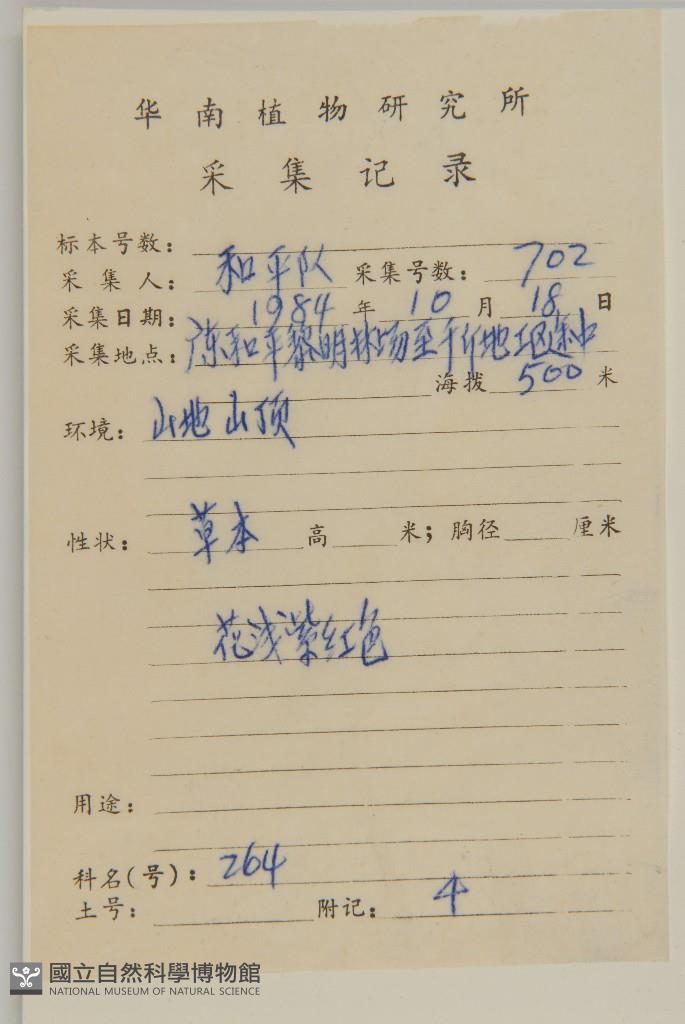 华南植物研究所
采集记录
标本号数：
采集人： 和平队 采集号数： 702
采集日期： 1984 年 10 月 18 日
采集地点： 和平黎明林场至千斤地途中
海拨 500 米
环境： 山地 山顶
性状： 草本 高 米；胸径 厘米
花浅紫红色
用途：
科名(号)： 264
土号： 附记： 4
國立自然科學博物館
NATIONAL MUSEUM OF NATURAL SCIENCE